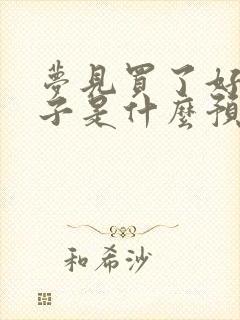 夢見買了好
子是什麼預
和希沙